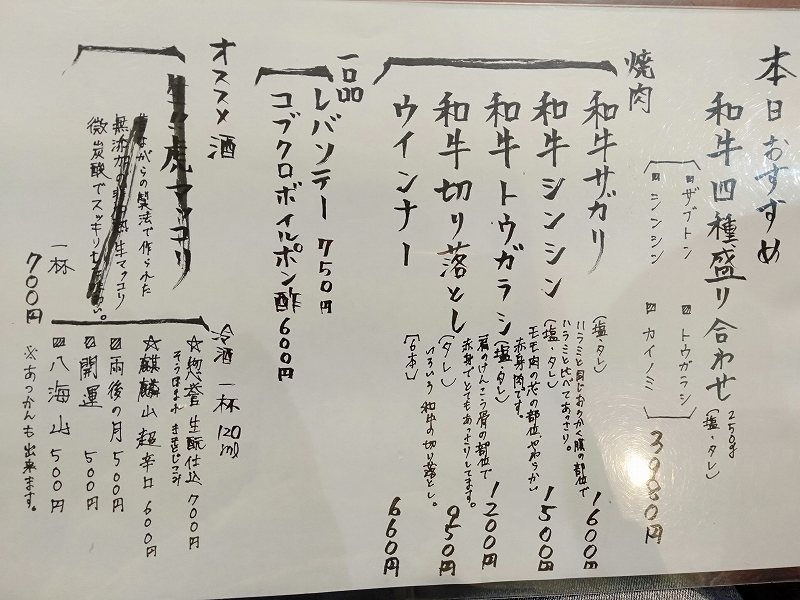 本日おすすめ
和牛四種盛り合わせ 250g (塩・タレ)
ザブトン トウガラシ
シンシン カイノミ
3980円
焼肉
和牛サガリ (塩・タレ) 1600円
ハラミと同じおなか腹の部位で
ハラミと比べてあっさり。
和牛シンシン (塩・タレ) 1500円
モモ肉の芯の部位やわらかい
赤身肉です。
和牛トウガラシ (塩・タレ) 1200円
肩のけんこう骨の部位で
赤身でとてもあっさりしてます。
和牛切り落とし (タレ) 950円
いろいろ和牛の切り落とし。
ウインナー 「6本」 660円
一品
レバソテー 750円
コブクロボイルポン酢 600円
オススメ 酒
虎マッコリ
昔ながらの製法で作られた
無添加の 生マッコリ
微炭酸でスッキリ
一杯 700円
冷酒 一杯 120ml
☆惣誉 生酛仕込 700円
そうほまれ きもとじこみ
☆麒麟山 超辛口 600円
雨後の月 500円
開運 500円
八海山 500円
※あつかんも出来ます。